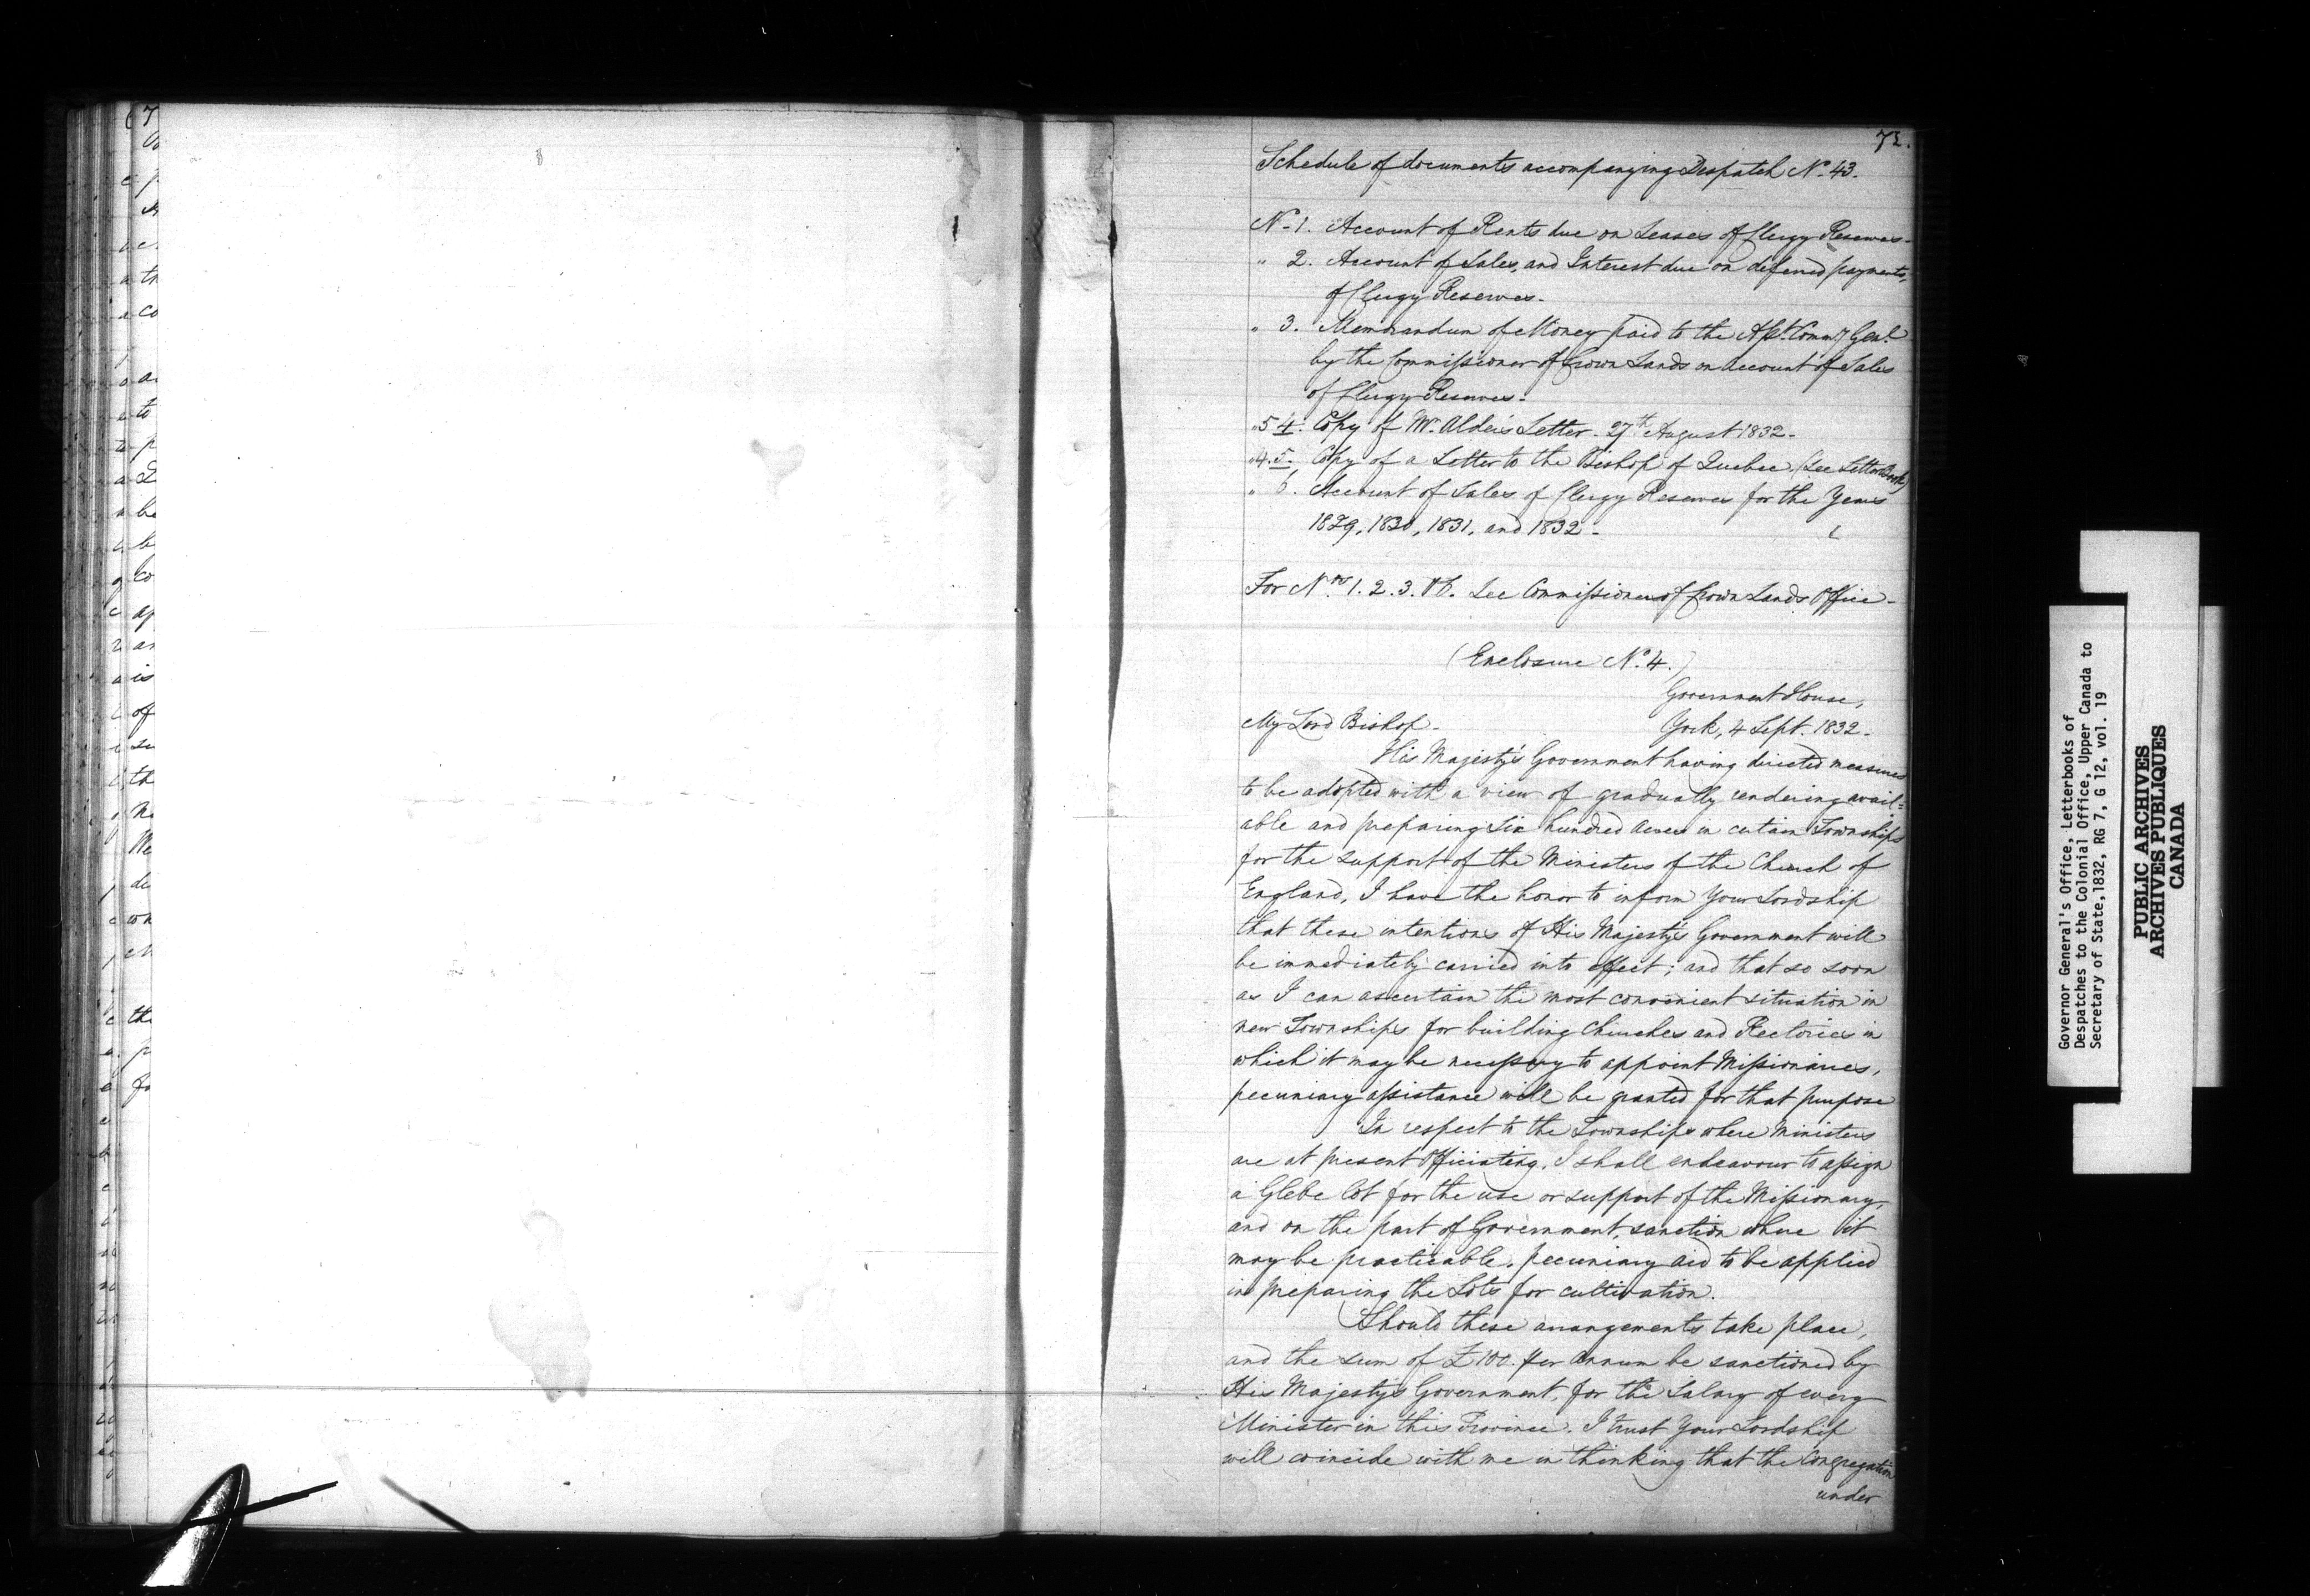 72.
Schedule of documents accompanying Despatch No. 43.
No. 1. Account of Rents due on Leases of Clergy Reserves.
" 2. Account of Sales, and Interest due on deferred payments,
of Clergy Reserves.
" 3. Memorandum of Money paid to the Asst. Commy Genl.
by the Commissioner of Crown Lands on Account of Sales
of Clergy Reserves.
" 5 4. Copy of Mr. Alder's Letter. 27th August 1832.
" 4. 5. Copy of a Letter to the Bishop of Quebec (See Letter Book)
" 6. Account of Sales of Clergy Reserves for the Years
1829, 1830, 1831, and 1832.
For Nos 1. 2. 3. & 6. See Commissioner of Crown Lands Office.
(Enclosure No. 4.)
Government House,
My Lord Bishop.
York, 4 Sept. 1832.
His Majesty's Government having directed measures
to be adopted with a view of gradually rendering avail=
able and preparing Six hundred Acres in certain Townships
for the support of the Ministers of the Church of
England, I have the honor to inform Your Lordship
that these intentions of His Majesty's Government will
be immediately carried into effect; and that so soon
as I can ascertain the most convenient situation in
new Townships for building Churches and Rectories in
which it may be necessary to appoint Missionaries,
pecuniary assistance will be granted for that purpose
In respect to the Townships where Ministers
are at present Officiating, I shall endeavour to assign
a Glebe lot for the use or support of the Missionary,
and on the part of Government, sanction where it
may be practicable, pecuniary aid to be applied
in preparing the Lots for cultivation.
Should these arrangements take place,
and the sum of £100. per Annum be sanctioned by
His Majesty's Government, for the Salary of every
Minister in this Province, I trust Your Lordship
will coincide with me in thinking that the Congregation
under
Governor General's Office, Letterbooks of
Despatches to the Colonial Office, Upper Canada to
Secretary of State, 1832, RG 7, G 12, vol. 19
PUBLIC ARCHIVES
ARCHIVES PUBLIQUES
CANADA